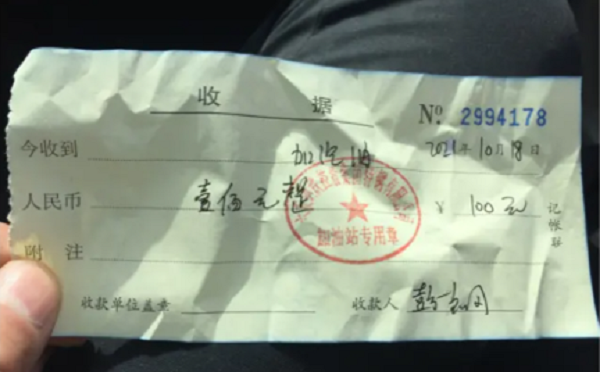 收 据
№ 2994178
今收到 加汽油 2021年10月18日
人民币 壹佰元整 ¥ 100元
附 注
加油站专用章
记帐联
收款单位盖章 收款人